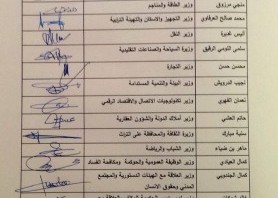 منجي مرزوق وزير الطاقة والمناجم
محمد صالح العرفاوي وزير التجهيز والإسكان والتهيئة الترابية
أنيس غديرة وزير النقل
سلمى اللومي الرقيق وزيرة السياحة والصناعات التقليدية
محسن حسن وزير التجارة
نجيب الدرويش وزير البيئة والتنمية المستدامة
نعمان الفهري وزير تكنولوجيات الاتصال والاقتصاد الرقمي
حاتم العشي وزير أملاك الدولة والشؤون العقارية
سنية مبارك وزيرة الثقافة والمحافظة على التراث
ماهر بن ضياء وزير الشباب والرياضة
كمال العيادي وزير الوظيفة العمومية والحوكمة ومكافحة الفساد
كمال الجندوبي وزير العلاقة مع الهيئات الدستورية والمجتمع
المدني وحقوق الانسان